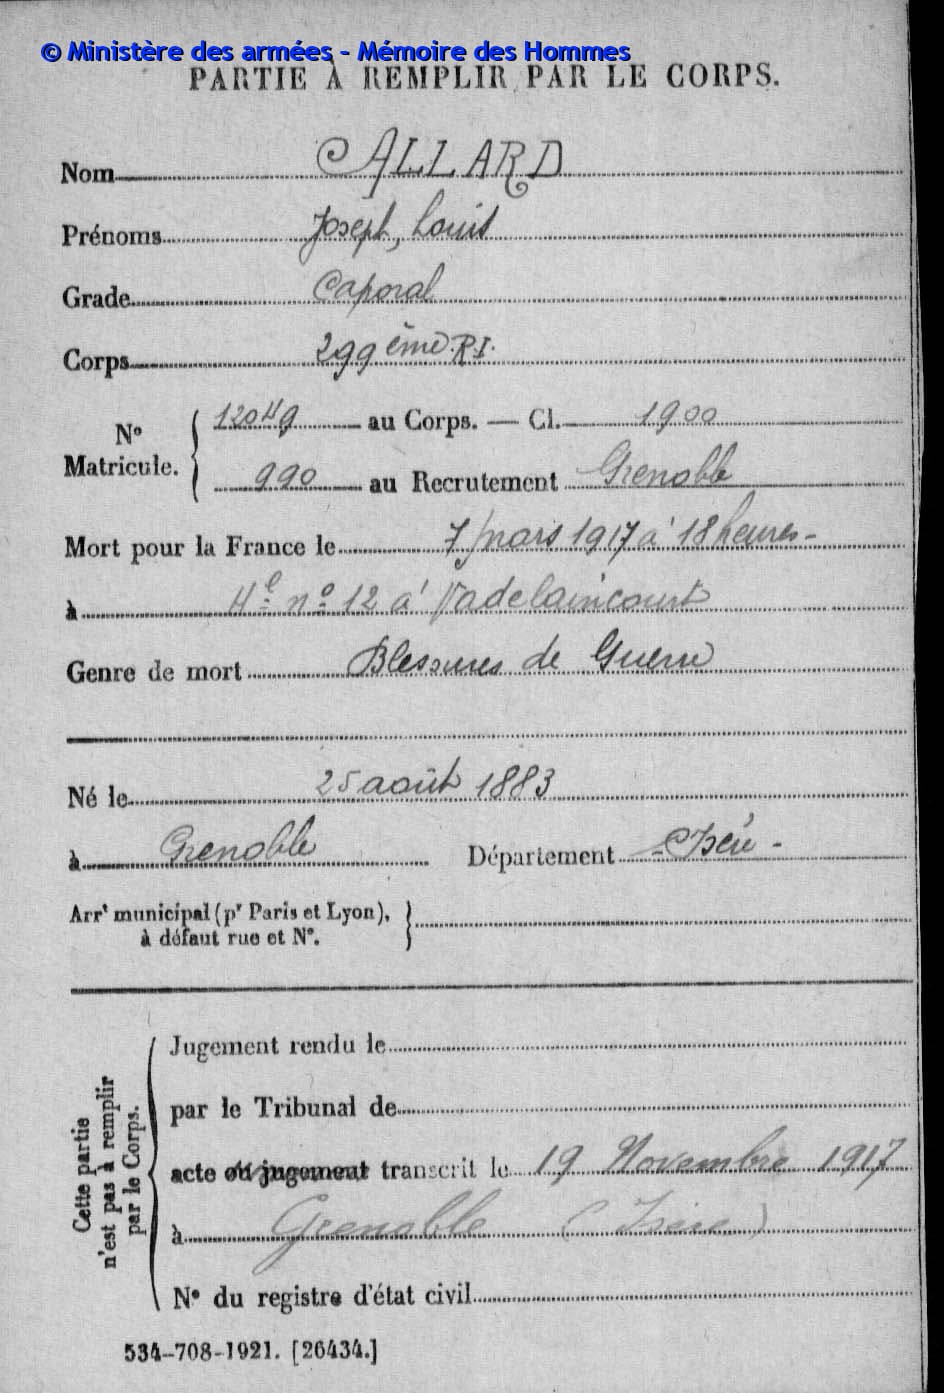 © Ministère des armées - Mémoire des Hommes
PARTIE À REMPLIR PAR LE CORPS.
Nom ALLARD
Prénoms Joseph, Louis
Grade Caporal
Corps 299ème R.I.
N° Matricule. 12049 au Corps. — Cl. 1900
990 au Recrutement Grenoble
Mort pour la France le 7 mars 1917 à 18 heures -
à H.e n° 12 à Vadelaincourt
Genre de mort Blessures de Guerre
Né le 25 août 1883
à Grenoble Département - Isère -
Arrt municipal (pr Paris et Lyon),
à défaut rue et N°.
Cette partie
n'est pas à remplir
par le Corps.
Jugement rendu le
par le Tribunal de
acte ou jugement transcrit le 19 Novembre 1917
à Grenoble (Isère)
N° du registre d'état civil
534-708-1921. [26434.]